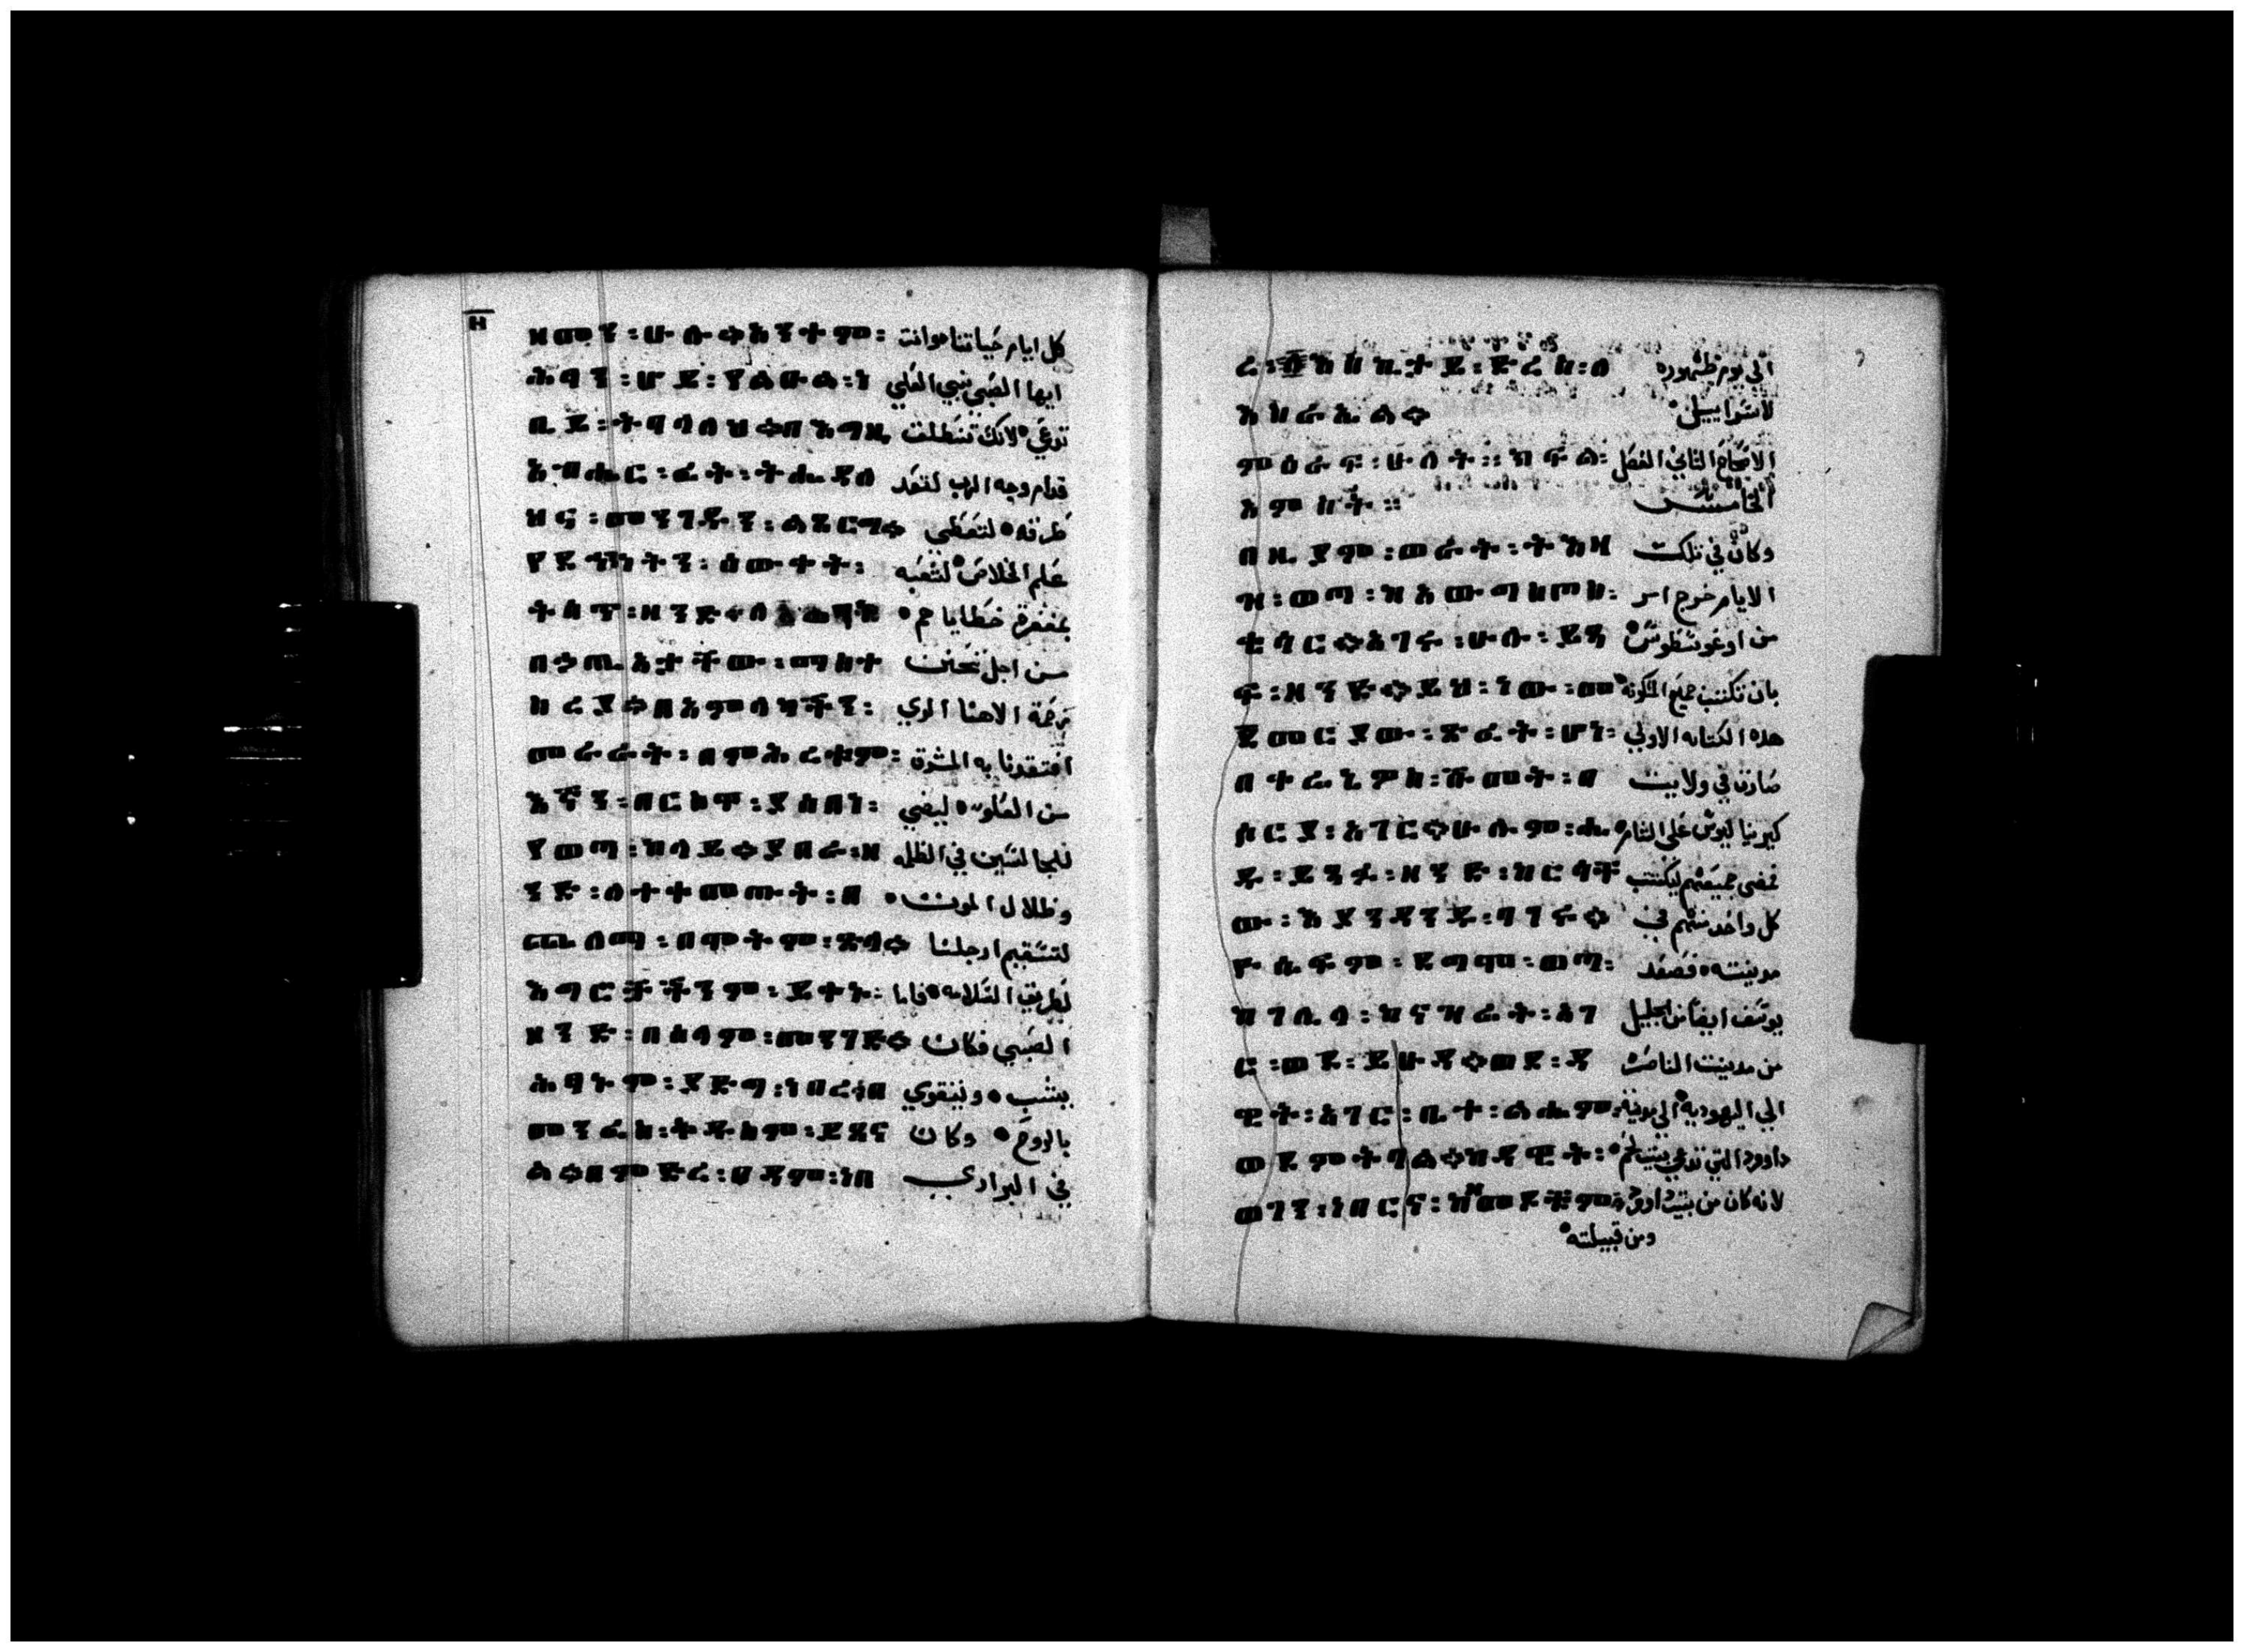 ዘመን : ሁሉ። አንተም : كل ايام حياتنا وانت
ሕፃን : ሆይ : የልዑል : ነ ايها الصبي نبي العلي
ቢይ : ትባላለህ። በእግዚ تدعي لانك تنطلق
አብሔር : ፊት : ትሔዳለ قدام وجه الرب لتعد
ህና : መንገዱን : طرقه لتعطي
የድኅነትን : ዕውቀት : علم الخلاص لشعبه
ትሰጥ : ዘንድ። بمغفرة خطاياهم
በኃጢአታቸው : ማስተ من اجل تحنن
ሰረያ። በአምላካችን : رحمة الاهنا الدي
በምሕረቱም : افتقدنا به المشرق
እኛን : من العلو ليضي
የወጣ : ከላይ። ያበራ : ዘ للجالسين في الظلمه
ንድ : ለተቀመጡት : በ وظلال الموت
ጨለማ : በሞትም : ጽላ። لتستقيم ارجلنا
እግርቻችንም : ይቀና : لطريق السلامه فاما
ዘንድ : በሰላም : መንገድ። الصبي فكان
ሕፃኑም : ያድግ : ነበረ። በ يشب ويتقوي
መንፈስ : ይጸና بالروح وكان
ል። በምድረ : በዳም : ነበ في البراري
ረ : ድረስ : ለ الي يوم ظهوره
እስራኤል። لاسراييل
ምዕራፍ : ሁለት :: ክፍል : الاصحاح الثاني الفصل
አምስት :: الخامس
በዚያም : ወራት : ትእዛ وكان في تلك
ዝ : ወጣ : الايام خرج امر
ቄሳር። አገሩ : ሁሉ : ይጻ من اوغوسطوس
ፍ : ዘንድ። ይህ : ነው : መ بان تكتتب جميع المسكونه
ጀመርያው : ጽፈት : ሆነ : هده الكتابه الاولي
በቀሬኔዎስ : ሹመት : በ صارت في ولايت
ሶርያ : አገር። ሁሉም : ሔ كيرينياليوس علي الشام
ዱ : ይጻፉ : ዘንድ : ከርሳቸ فمضي جميعهم ليكتتب
ው : እያንዳንዱ : ባገሩ። كل واحد منهم في
ዮሴፍም : ደግሞ : ወጣ : مدينته فصعد
ከገሊላ : ከናዝሬት : አገ يوسف ايضا من الجليل
ር : ወደ : ይሁዳ። ወደ : ዳ من مدينت الناصره
ዊት : አገር : ቤተ : ልሔም : الي اليهوديه الي مدينة
ወደምትባል። ከዳዊት : داوود التي تدعي بيت لحم
ወገን : ነበርና : ከዘመዶቹም : لانه كان من بيت داوود
ومن قبيلته